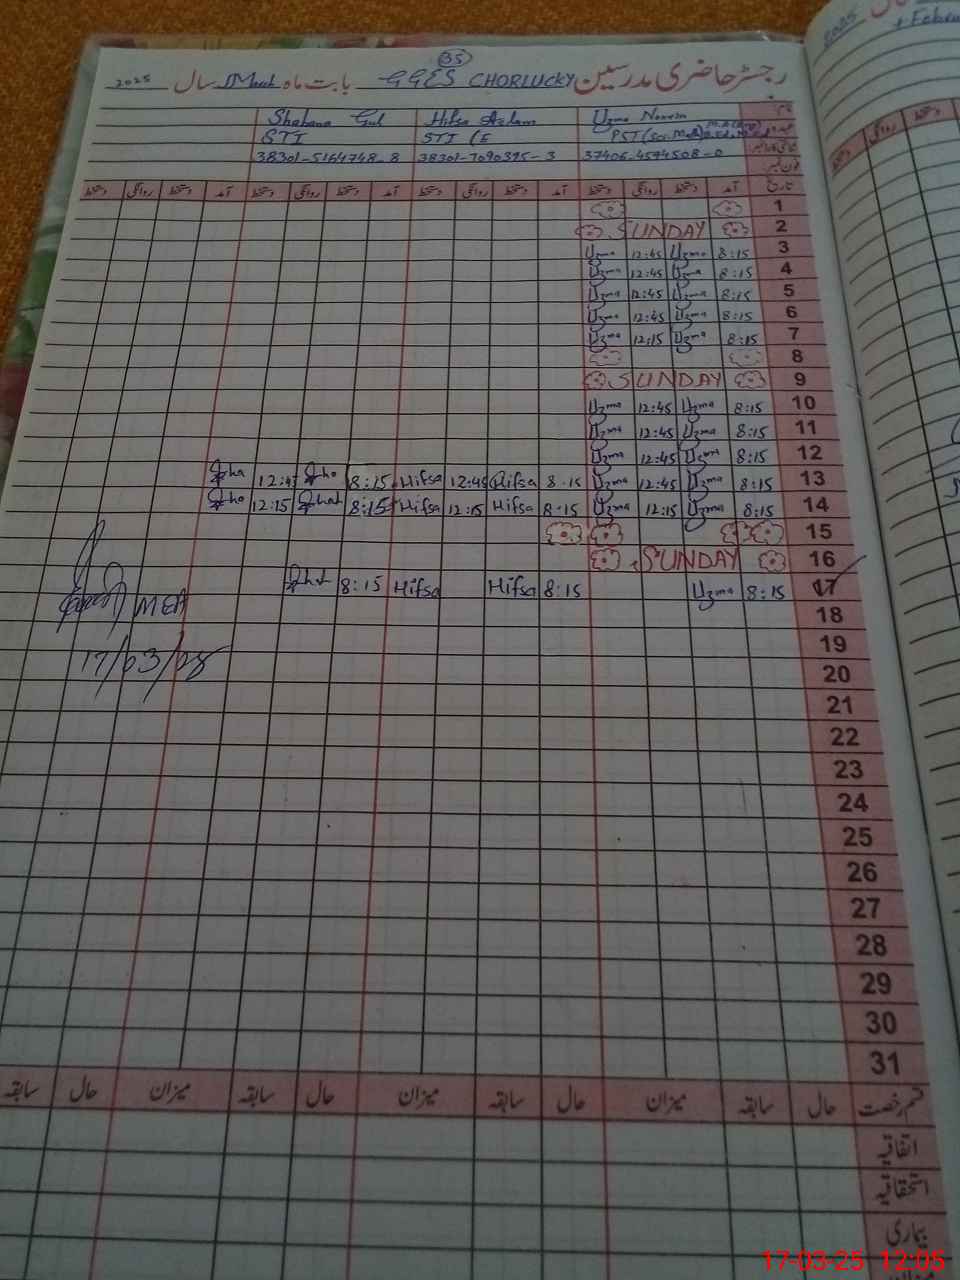 رجسٹر حاضری مدرسین GGES CHORLUCKY بابت ماہ March سال 2025
35
Uzma Noreen Hifsa Aslam Shabana Gul
STI STI
37406-4574508-0 38301-7090395-3 38301-5164748-8
تاریخ آمد دستخط روانگی دستخط آمد دستخط روانگی دستخط آمد دستخط روانگی دستخط
1
2 SUNDAY
3 8:15 Uzma 12:45 Uzma
4 8:15 Uzma 12:45 Uzma
5 8:15 Uzma 12:45 Uzma
6 8:15 Uzma 12:45 Uzma
7 8:15 Uzma 12:15 Uzma
8
9 SUNDAY
10 8:15 Uzma 12:45 Uzma
11 8:15 Uzma 12:45 Uzma
12 8:15 Uzma 12:45 Uzma
13 8:15 Uzma 12:45 Uzma 8:15 Hifsa 12:45 Hifsa 8:15 12:45
14 8:15 Uzma 12:15 Uzma 8:15 Hifsa 12:15 Hifsa 8:15 12:15
15
16 SUNDAY
17 8:15 Uzma 8:15 Hifsa Hifsa 8:15
MEA
18
17/03/25
19
20
21
22
23
24
25
26
27
28
29
30
31
قسم رخصت حال سابقہ میزان حال سابقہ میزان حال سابقہ میزان حال سابقہ
اتفاقیہ
استحقاقیہ
بیماری
17-03-25 12:05
2025